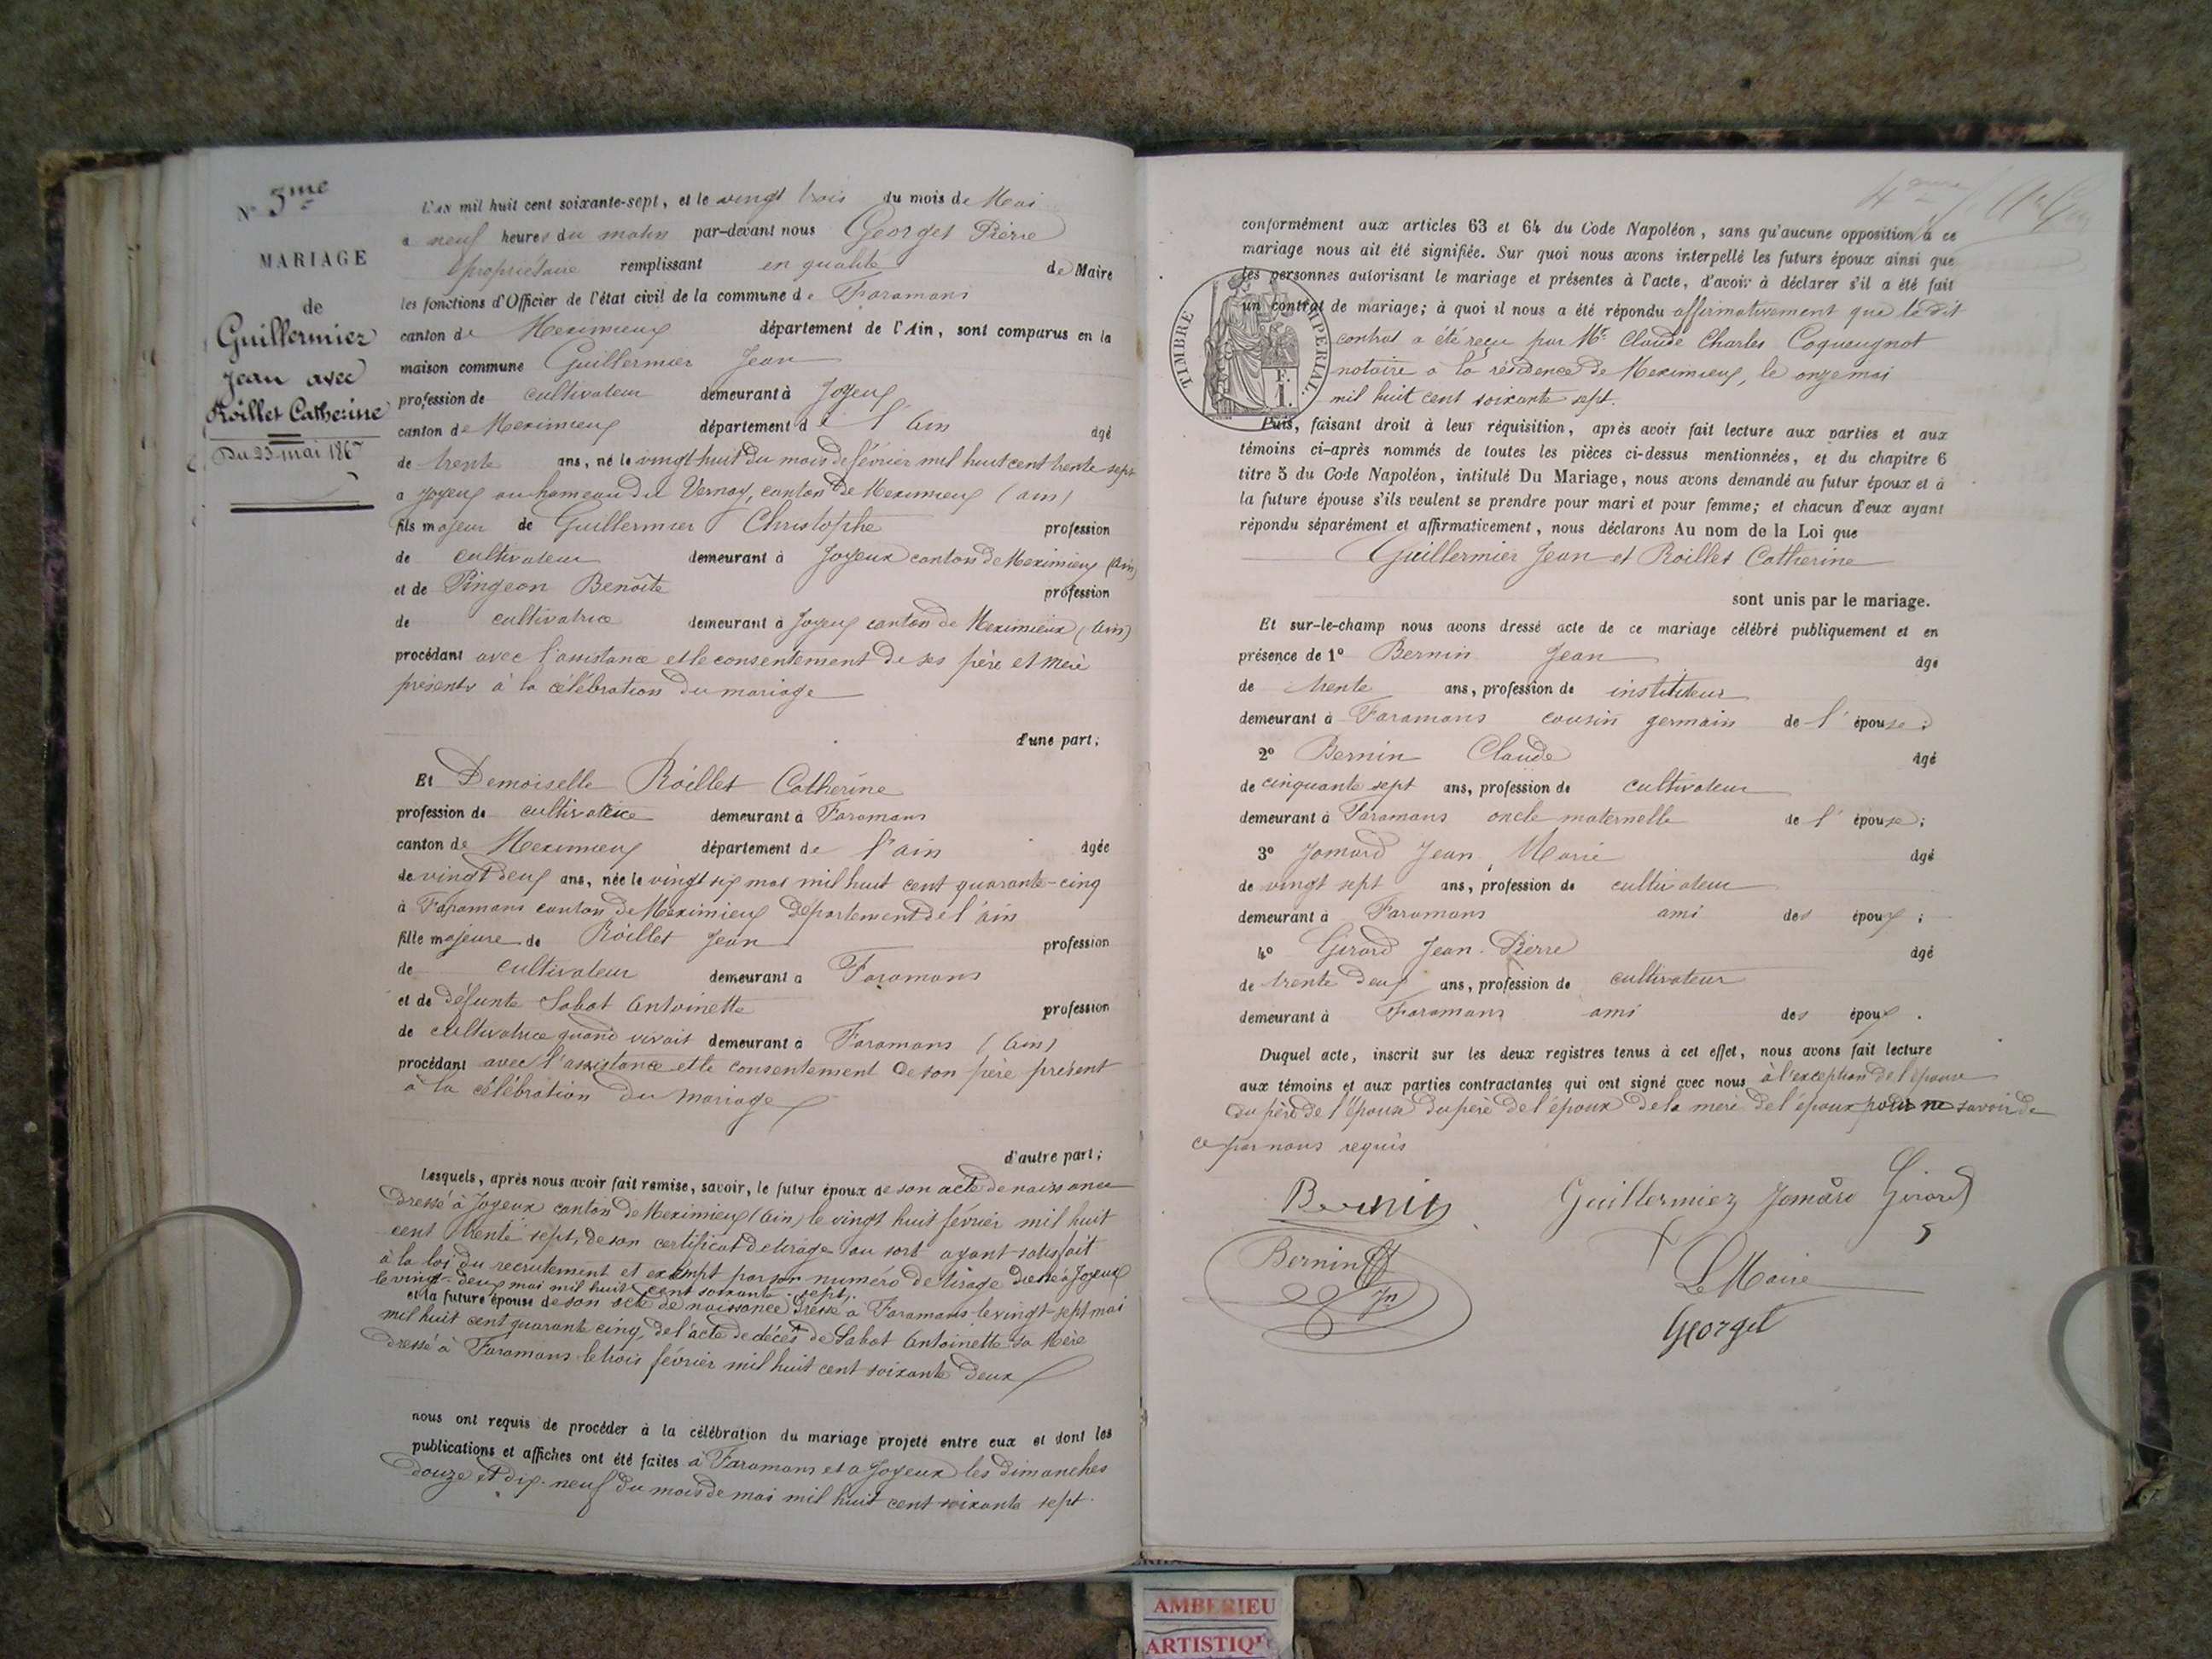 N° 5me
MARIAGE
de
Guillermier
Jean avec
Roillet Catherine
Du 23 mai 1867
L'AN mil huit cent soixante-sept, et le vingt trois du mois de Mai
à neuf heures du matin par-devant nous Georges Pierre
propriétaire remplissant en qualité de Maire
les fonctions d'Officier de l'état civil de la commune de Faramans
canton de Meximieux département de l'Ain, sont comparus en la
maison commune Guillermier Jean
profession de cultivateur demeurant à Joyeux
canton de Meximieux département de l'Ain âgé
de trente ans, né le vingt huit du mois de février mil huit cent trente sept
a Joyeux au hameau du Vernay, canton de Meximieux (ain)
fils majeur de Guillermier Christophe profession
de cultivateur demeurant à Joyeux canton de Meximieux (Ain)
et de Pingeon Benoîte profession
de cultivatrice demeurant à Joyeux canton de Meximieux (Ain)
procédant avec l'assistance et le consentement de ses père et mère
présents à la célébration du mariage
d'une part;
Et Demoiselle Roillet Catherine
profession de cultivatrice demeurant à Faramans
canton de Meximieux département de l'ain âgée
de vingt deux ans, née le vingt six mai mil huit cent quarante-cinq
à Faramans canton de Meximieux département de l'ain
fille majeure de Roillet Jean profession
de cultivateur demeurant a Faramans
et de défunte Sabot Antoinette profession
de cultivatrice quand vivait demeurant à Faramans (Ain)
procédant avec l'assistance et le consentement de son père présent
à la célébration du mariage
d'autre part;
Lesquels, après nous avoir fait remise, savoir, le futur époux de son acte de naissance
dressé à Joyeux canton de Meximieux (Ain) le vingt huit février mil huit
cent trente sept, de son certificat de tirage au sort ayant satisfait
à la loi du recrutement et exempt par son numéro de tirage dressé à Joyeux
le vingt-deux mai mil huit cent soixante-sept,
et la future épouse de son acte de naissance dressé à Faramans le vingt-sept mai
mil huit cent quarante cinq, de l'acte de décès de Sabot Antoinette sa Mère
dressé à Faramans le trois février mil huit cent soixante deux
nous ont requis de procéder à la célébration du mariage projeté entre eux et dont les
publications et affiches ont été faites à Faramans et a Joyeux les dimanches
douze et dix-neuf du mois de mai mil huit cent soixante sept.
4me
conformément aux articles 63 et 64 du Code Napoléon, sans qu'aucune opposition à ce
mariage nous ait été signifiée. Sur quoi nous avons interpellé les futurs époux ainsi que
les personnes autorisant le mariage et présentes à l'acte, d'avoir à déclarer s'il a été fait
un contrat de mariage; à quoi il nous a été répondu affirmativement que le dit
contrat a été reçu par Me Claude Charles Coqueugnot
notaire à la résidence de Meximieux, le onze mai
mil huit cent soixante sept.
TIMBRE IMPERIAL
F.
1.
Puis, faisant droit à leur réquisition, après avoir fait lecture aux parties et aux
témoins ci-après nommés de toutes les pièces ci-dessus mentionnées, et du chapitre 6
titre 5 du Code Napoléon, intitulé Du Mariage, nous avons demandé au futur époux et à
la future épouse s'ils veulent se prendre pour mari et pour femme; et chacun d'eux ayant
répondu séparément et affirmativement, nous déclarons Au nom de la Loi que
Guillermier Jean et Roillet Catherine
sont unis par le mariage.
Et sur-le-champ nous avons dressé acte de ce mariage célébré publiquement et en
présence de 1° Bernin Jean âgé
de trente ans, profession de instituteur
demeurant à Faramans cousin germain de l'épouse;
2° Bernin Claude âgé
de cinquante sept ans, profession de cultivateur
demeurant à Faramans oncle maternelle de l'épouse;
3° Jomard Jean Marie âgé
de vingt sept ans, profession de cultivateur
demeurant à Faramans ami des époux;
4° Girard Jean-Pierre âgé
de trente deux ans, profession de cultivateur
demeurant à Faramans ami des époux.
Duquel acte, inscrit sur les deux registres tenus à cet effet, nous avons fait lecture
aux témoins et aux parties contractantes qui ont signé avec nous à l'exception de l'épouse
du père de l'épouse du père de l'époux de la mère de l'époux pour ne savoir de
ce par nous requis
Bernin Guillermiez Jomard Girard
Bernin Jn
Le Maire
Georget
AMBERIEU
ARTISTIQU